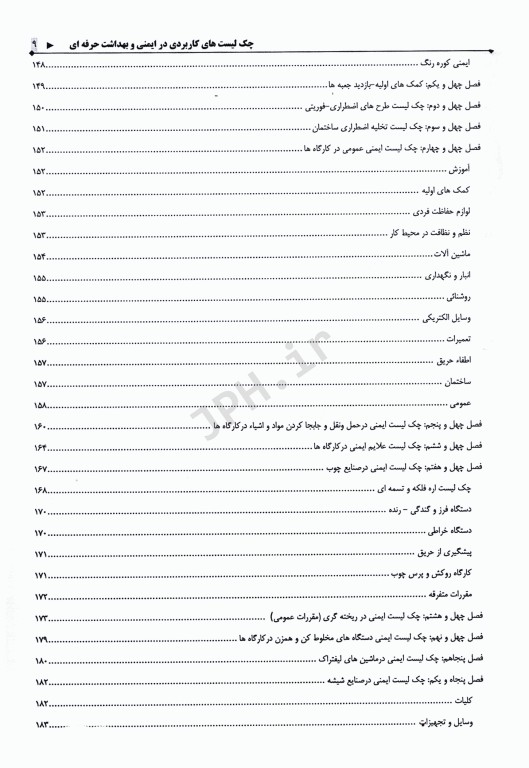 چک لیست های کاربردی در ایمنی و بهداشت حرفه ای ◄ ۹
ایمنی کوره رنگ ...۱۴۸
فصل چهل و یکم: کمک های اولیه-بازدید جعبه ها...۱۴۹
فصل چهل و دوم: چک لیست طرح های اضطراری-فوریتی ...۱۵۰
فصل چهل و سوم: چک لیست تخلیه اضطراری ساختمان...۱۵۱
فصل چهل و چهارم: چک لیست ایمنی عمومی در کارگاه ها...۱۵۲
آموزش ...۱۵۲
کمک های اولیه ...۱۵۲
لوازم حفاظت فردی ...۱۵۳
نظم و نظافت در محیط کار ...۱۵۳
ماشین آلات...۱۵۴
انبار و نگهداری ...۱۵۵
روشنائی ...۱۵۵
وسایل الکتریکی ...۱۵۶
تعمیرات ...۱۵۶
اطفاء حریق ...۱۵۷
ساختمان ...۱۵۷
عمومی ...۱۵۸
فصل چهل و پنجم: چک لیست ایمنی درحمل ونقل و جابجا کردن مواد و اشیاء درکارگاه ها ...۱۶۰
فصل چهل و ششم: چک لیست علایم ایمنی درکارگاه ها...۱۶۴
فصل چهل و هفتم: چک لیست ایمنی درصنایع چوب ...۱۶۷
چک لیست اره فلکه و تسمه ای ...۱۶۸
دستگاه فرز و گندگی - رنده ...۱۷۰
دستگاه خراطی ...۱۷۰
پیشگیری از حریق ...۱۷۱
کارگاه روکش و پرس چوب ...۱۷۱
مقررات متفرقه ...۱۷۲
فصل چهل و هشتم: چک لیست ایمنی در ریخته گری (مقررات عمومی) ...۱۷۳
فصل چهل و نهم: چک لیست ایمنی دستگاه های مخلوط کن و همزن درکارگاه ها ...۱۷۹
فصل پنجاهم: چک لیست ایمنی درماشین های لیفتراک ...۱۸۰
فصل پنجاه و یکم: چک لیست ایمنی درصنایع شیشه ...۱۸۲
کلیات ...۱۸۲
وسایل و تجهیزات ...۱۸۳
JPH.ir